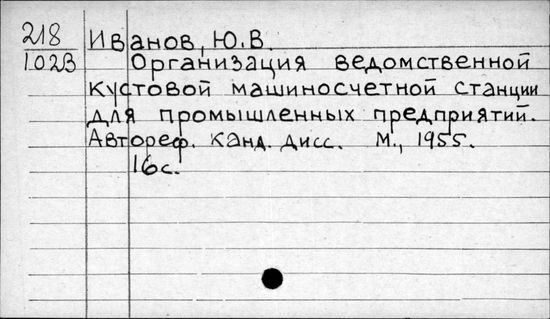 218 Иванов, Ю.В.
1023 Организация ведомственной
кустовой машиносчетной станции
для промышленных предприятий.
Автореф. канд. дисс. М., 1955.
16с.